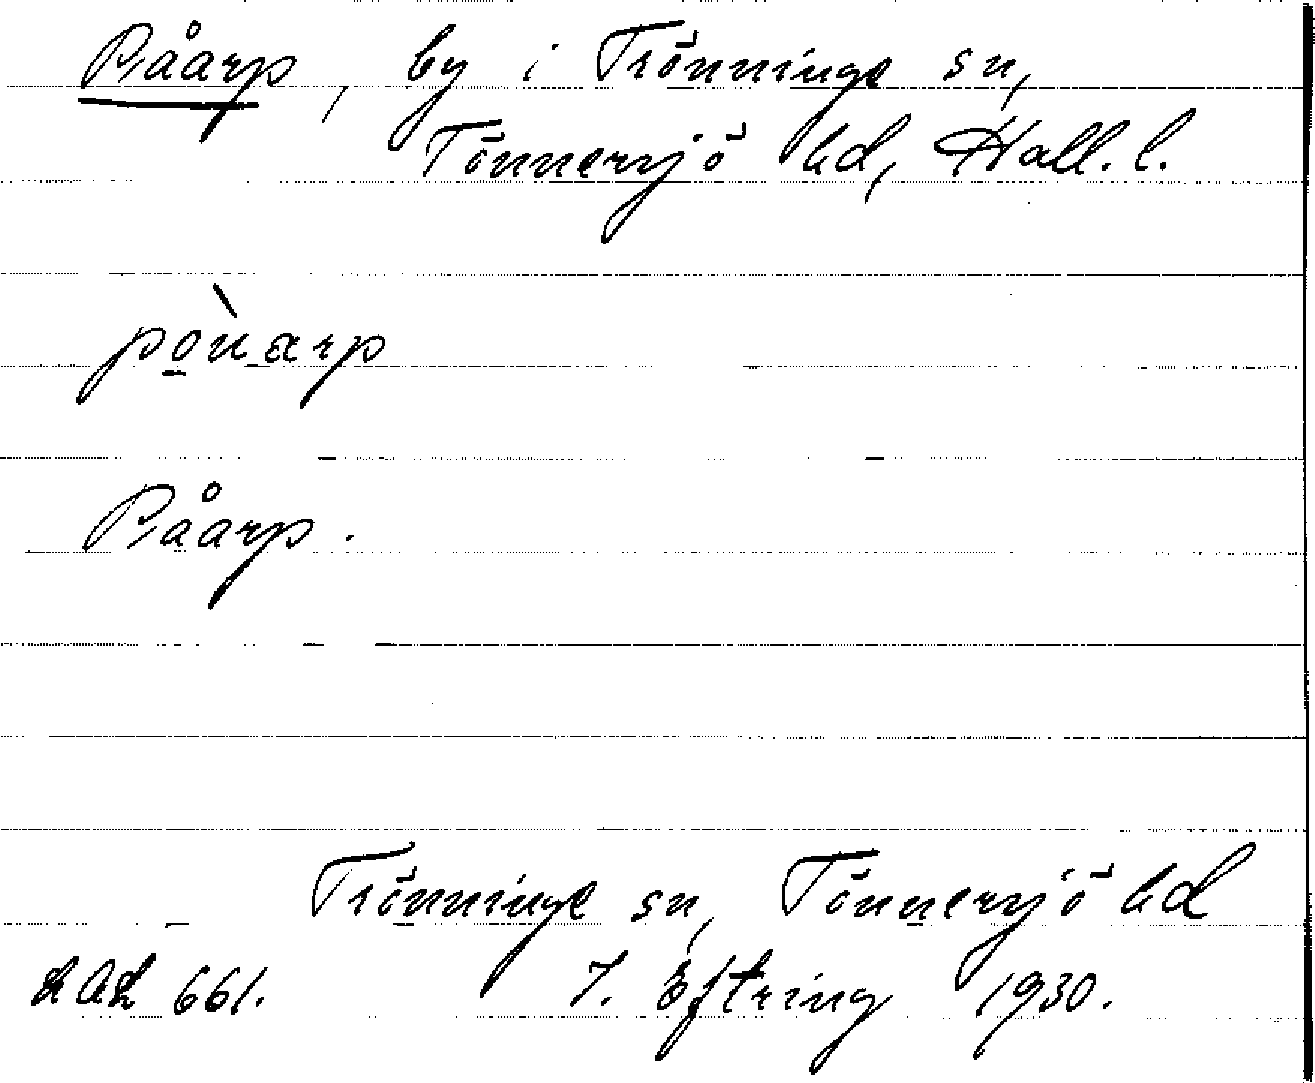 Påarp, by i Trönninge sn,
Tönnersjö hd, Hall. l.
pòu̯arp
Påarp.
Trönninge sn, Tönnersjö hd
LAL 661. J. Eftring 1930.